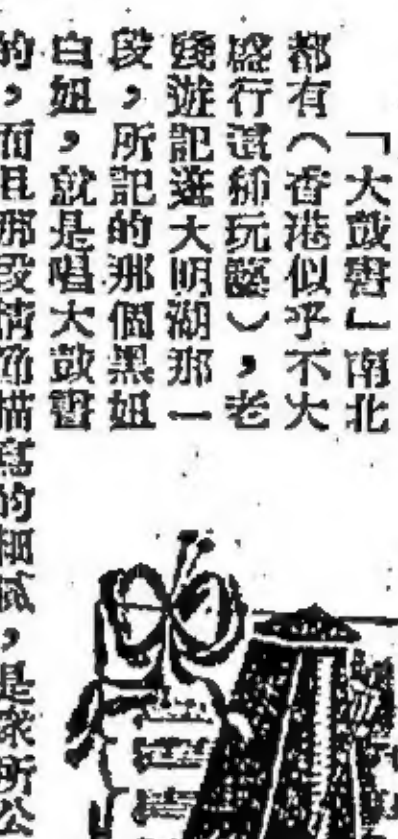 「大鼓書」南北
都有（香港似乎不大
盛行這種玩藝），老
殘遊記逛大明湖那一
段，所記的那個黑妞
白妞，就是唱大鼓書
的，而且那段情節描寫的細膩，是眾所公